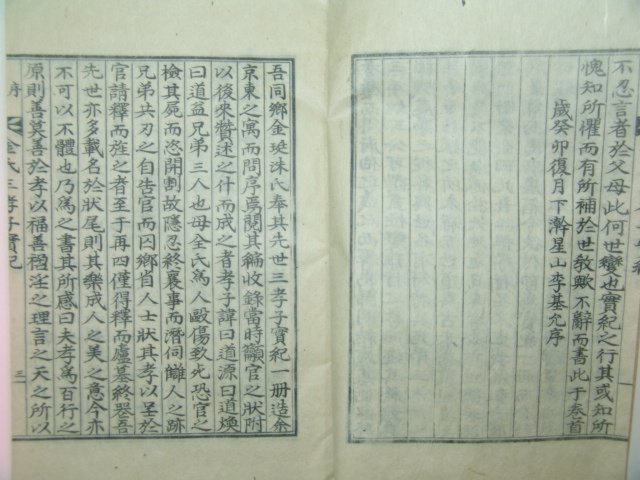 不忍言者於父母此何世變也實紀之行其或知所
愧知所懼而有所補於世敎歟不辭而書此于卷首
歲癸卯復月下澣星山李基允序
吾同鄕金珽洙氏奉其先世三孝子實紀一冊造余
京東之寓而問序焉閱其編收錄當時籲官之狀附
以後來贊述之什而成之者孝子諱曰道源曰道煥
曰道益兄弟三人也母全氏爲人毆傷致死恐官之
檢其屍而恣開割故隱忍終襄事而潛伺讎人之跡
兄弟共刃之自告官而囚鄕省人士狀其孝以呈於
官請釋而旌之者至于再四僅得釋而廬墓終喪吾
先世亦多載名於狀尾則其樂成人之美之意今亦
不可以不體也乃爲之書其所感曰夫孝爲百行之
原則善莫善於孝以福善禍淫之理言之天之所以
序 金氏三孝子實紀 三